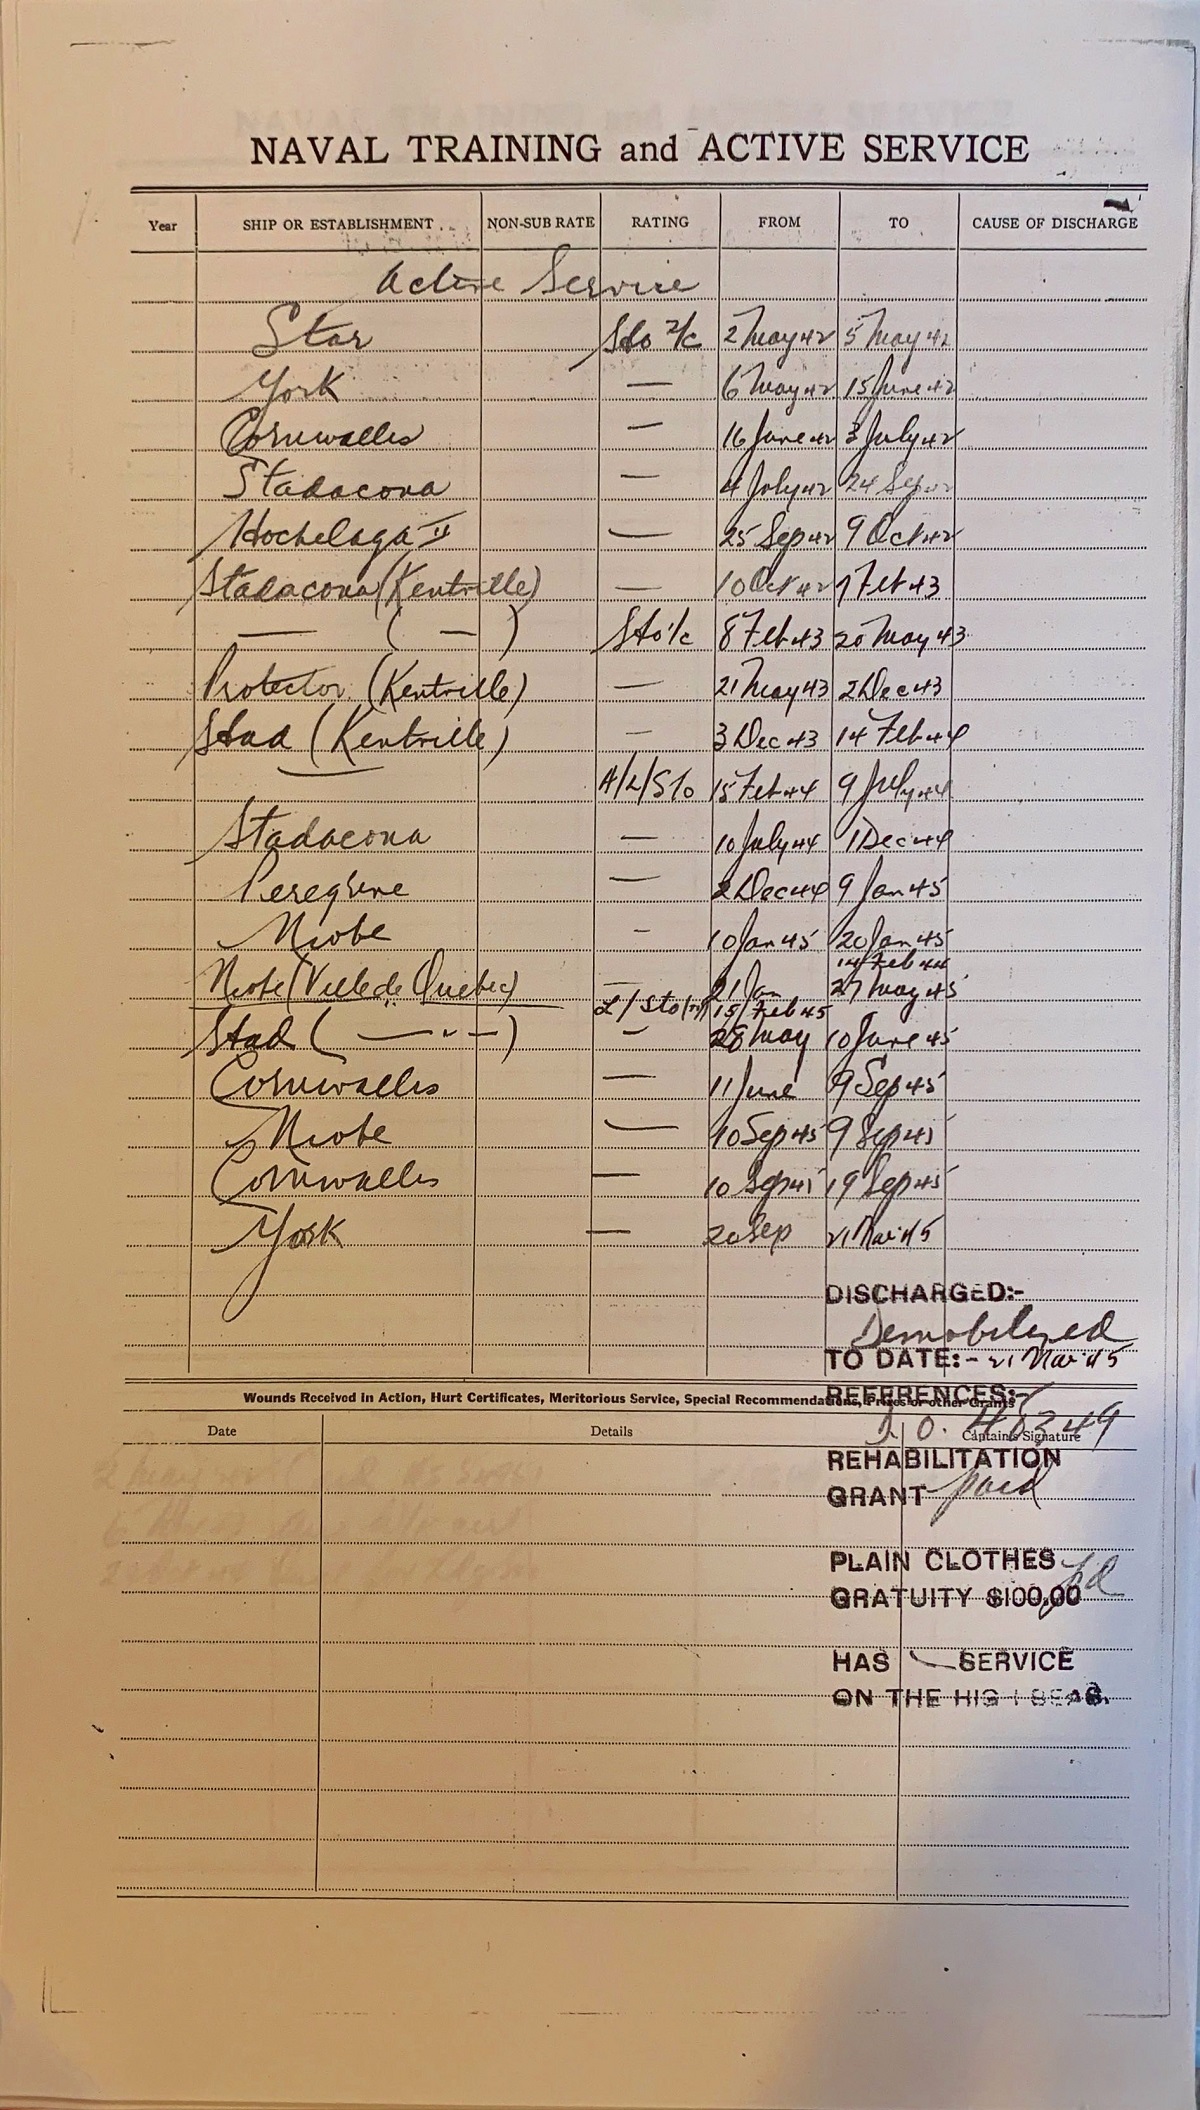 NAVAL TRAINING and ACTIVE SERVICE
Year SHIP OR ESTABLISHMENT NON-SUB RATE RATING FROM TO CAUSE OF DISCHARGE
Active Service
Star Sto 2/c 2 May 42 5 May 42
York — 6 May 42 15 June 42
Cornwallis — 16 June 42 3 July 42
Stadacona — 4 July 42 24 Sep 42
Hochelaga II — 25 Sep 42 9 Oct 42
Stadacona (Kentville) — 10 Oct 42 7 Feb 43
— ( — ) Sto 1/c 8 Feb 43 20 May 43
Protector (Kentville) — 21 May 43 2 Dec 43
Stad (Kentville) — 3 Dec 43 14 Feb 44
— A/L/Sto 15 Feb 44 9 July 44
Stadacona — 10 July 44 1 Dec 44
Peregrine — 2 Dec 44 9 Jan 45
Niobe — 10 Jan 45 20 Jan 45
Niobe (Ville de Quebec) — 21 Jan 14 Feb 44
L/Sto 15 Feb 45 27 May 45
Stad ( — " — ) — 28 May 10 June 45
Cornwallis — 11 June 9 Sep 45
Niobe — 10 Sep 45 9 Sep 45
Cornwallis — 10 Sep 45 19 Sep 45
York — 20 Sep 21 Nov 45
DISCHARGED:-
Demobilyzed
TO DATE:- 21 Nov 45
REFERENCES:-
Wounds Received in Action, Hurt Certificates, Meritorious Service, Special Recommendations, Prizes or other Grants
D.O.
Date Details Captain's Signature
REHABILITATION
GRANT paid
PLAIN CLOTHES pd
GRATUITY $100.00
HAS SERVICE
ON THE HIGH SEAS.